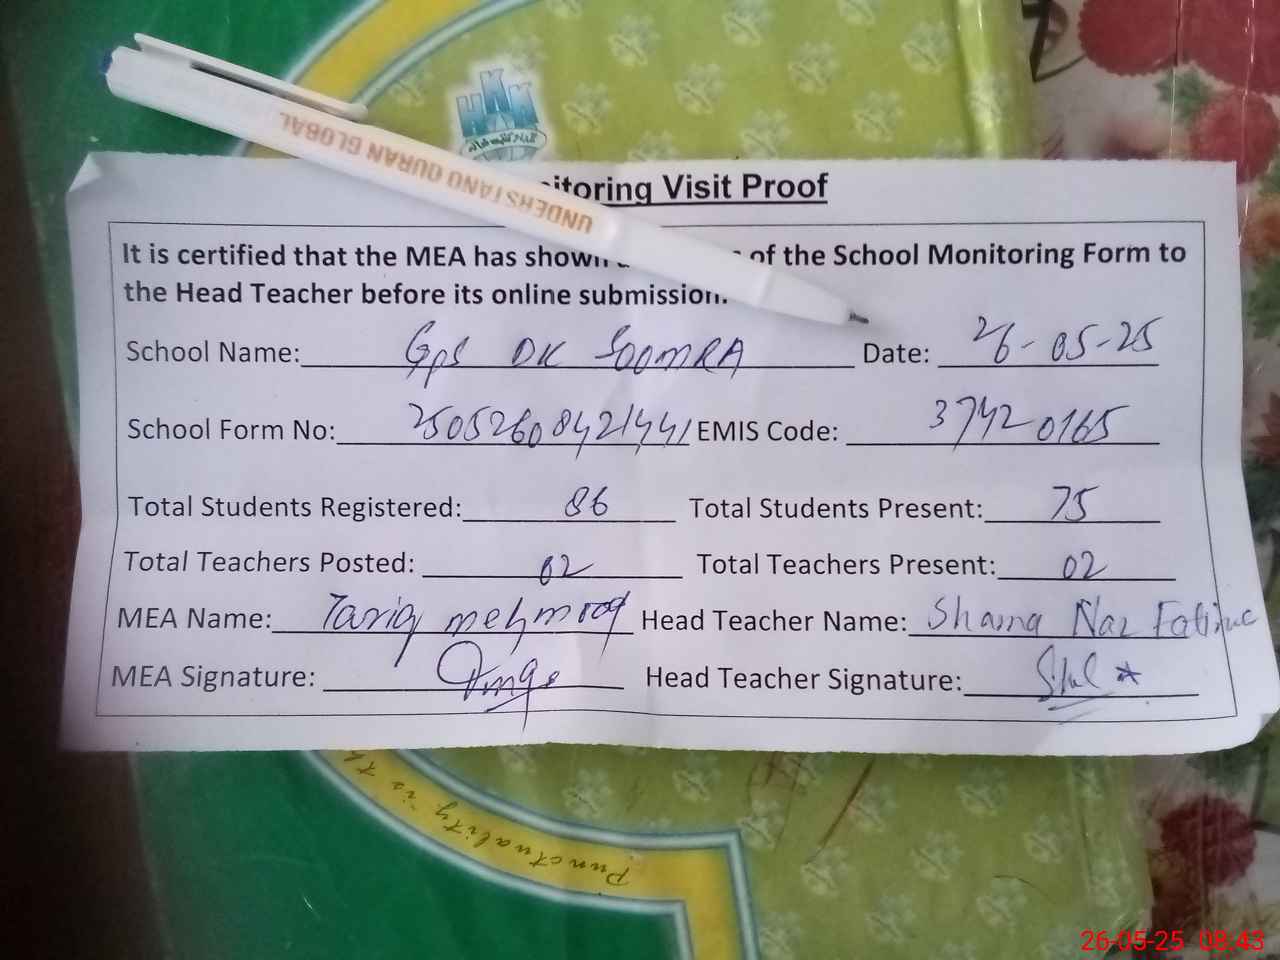 HKK
UNDERSTAND QURAN GLOBAL
itoring Visit Proof
It is certified that the MEA has shown of the School Monitoring Form to
the Head Teacher before its online submission.
School Name: Gps DK SoomRA Date: 26-05-25
School Form No: 25052608421441 EMIS Code: 37420165
Total Students Registered: 86 Total Students Present: 75
Total Teachers Posted: 02 Total Teachers Present: 02
MEA Name: Tariq mehmood Head Teacher Name: Shama Naz
MEA Signature: Head Teacher Signature:
Punctuality is th
26-05-25 08:43